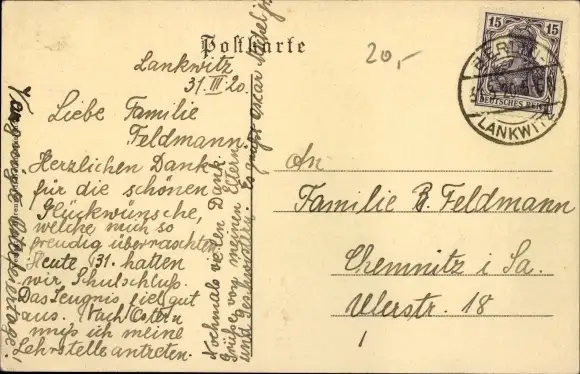 Postkarte
20,-
15 15
DEUTSCHES REICH
BERLIN-
LANKWITZ
Lankwitz
31. III. 20.
Liebe Familie
Feldmann.
Herzlichen Dank
für die schönen
Glückwünsche,
welche mich so
freudig überraschten.
Heute 31. hatten
wir Schulschluß.
Das Zeugnis fiel gut
aus. Nach Ostern
muß ich meine
Lehrstelle antreten.
Nochmals vielen Dank.
Grüße von meinen Eltern
und Geschwistern. Es grüßt Oskar
Vergnügte Osterfeiertage!
An
Familie R. Feldmann
Chemnitz i Sa.
Ulerstr. 18